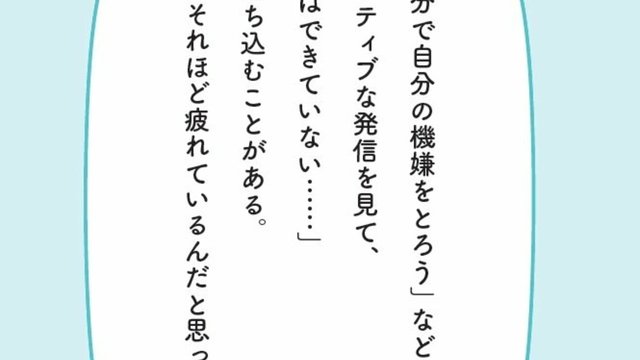 分で自分の機嫌をとろう」など
ティブな発信を見て、
はできていない……」
ち込むことがある。
それほど疲れているんだと思っ